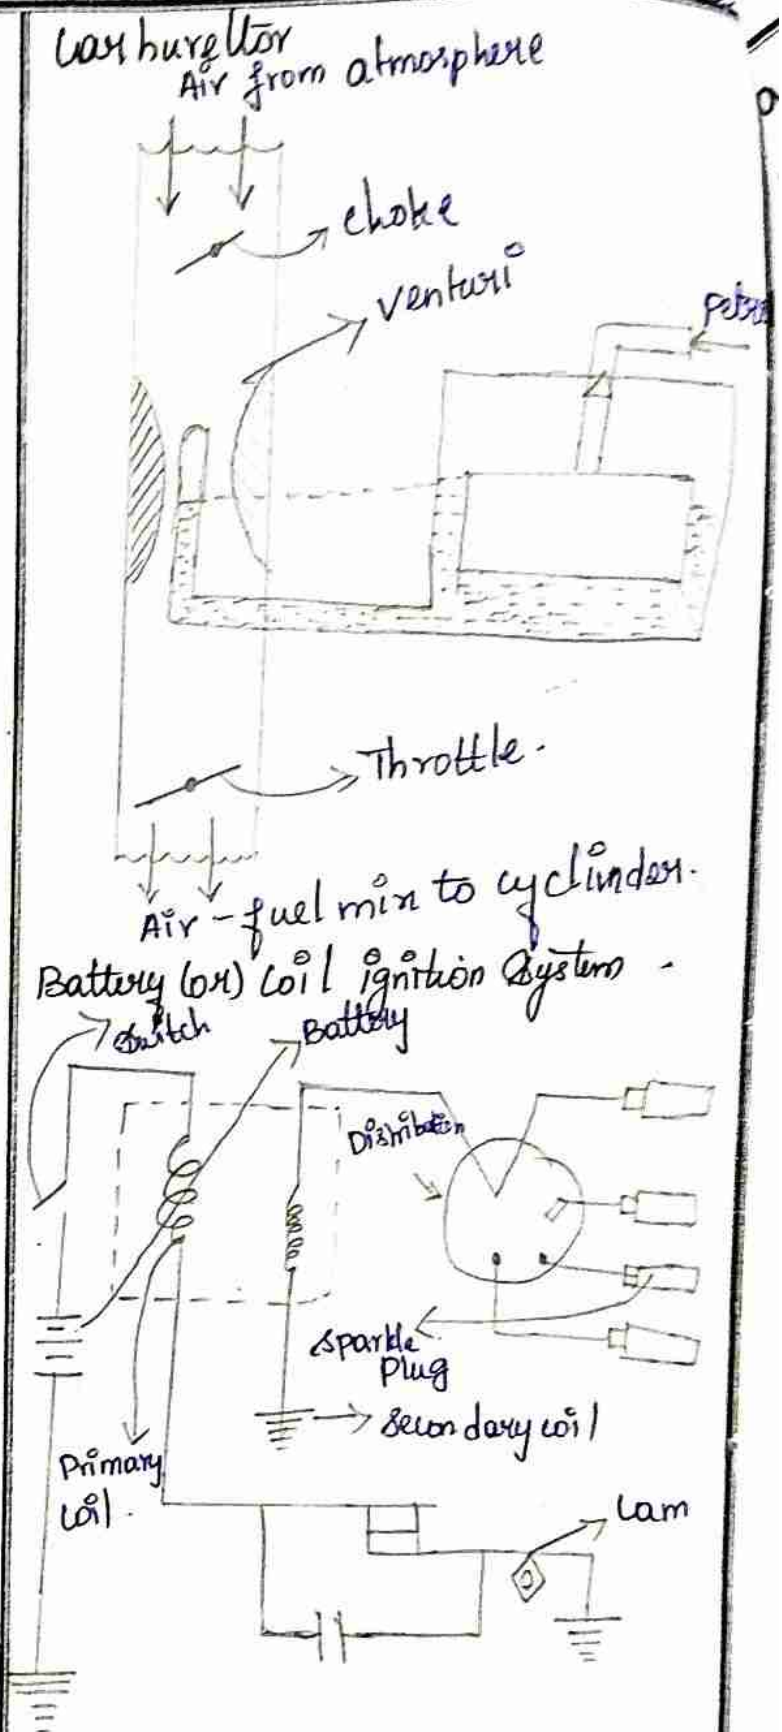 Carburettor
Air from atmosphere
choke
Venturi
Throttle.
Air - fuel mix to cyclinder.
Battery (or) Coil ignition System.
Switch
Battery
Sparkle
Plug
Secondary coil
Primary
Coil.
Cam